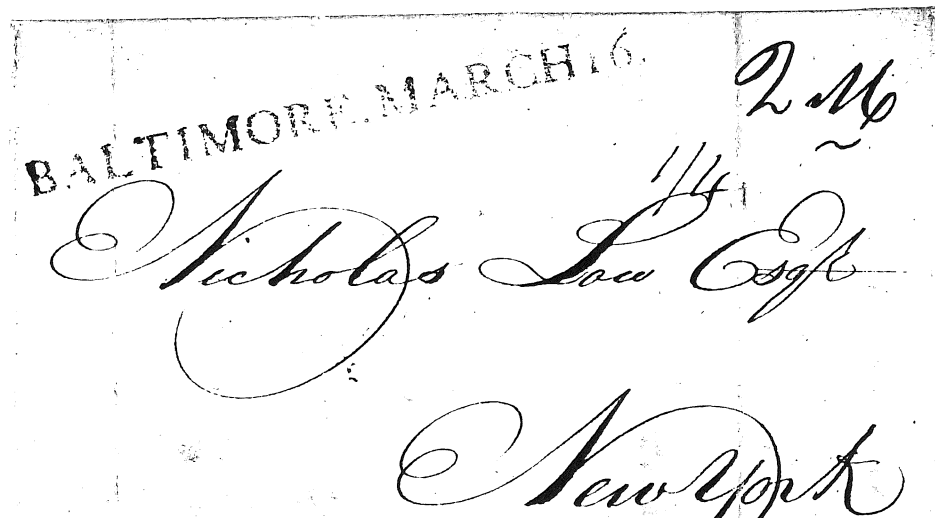 BALTIMORE. MARCH 16.
1/4
Nicholas Low Esqr
New York